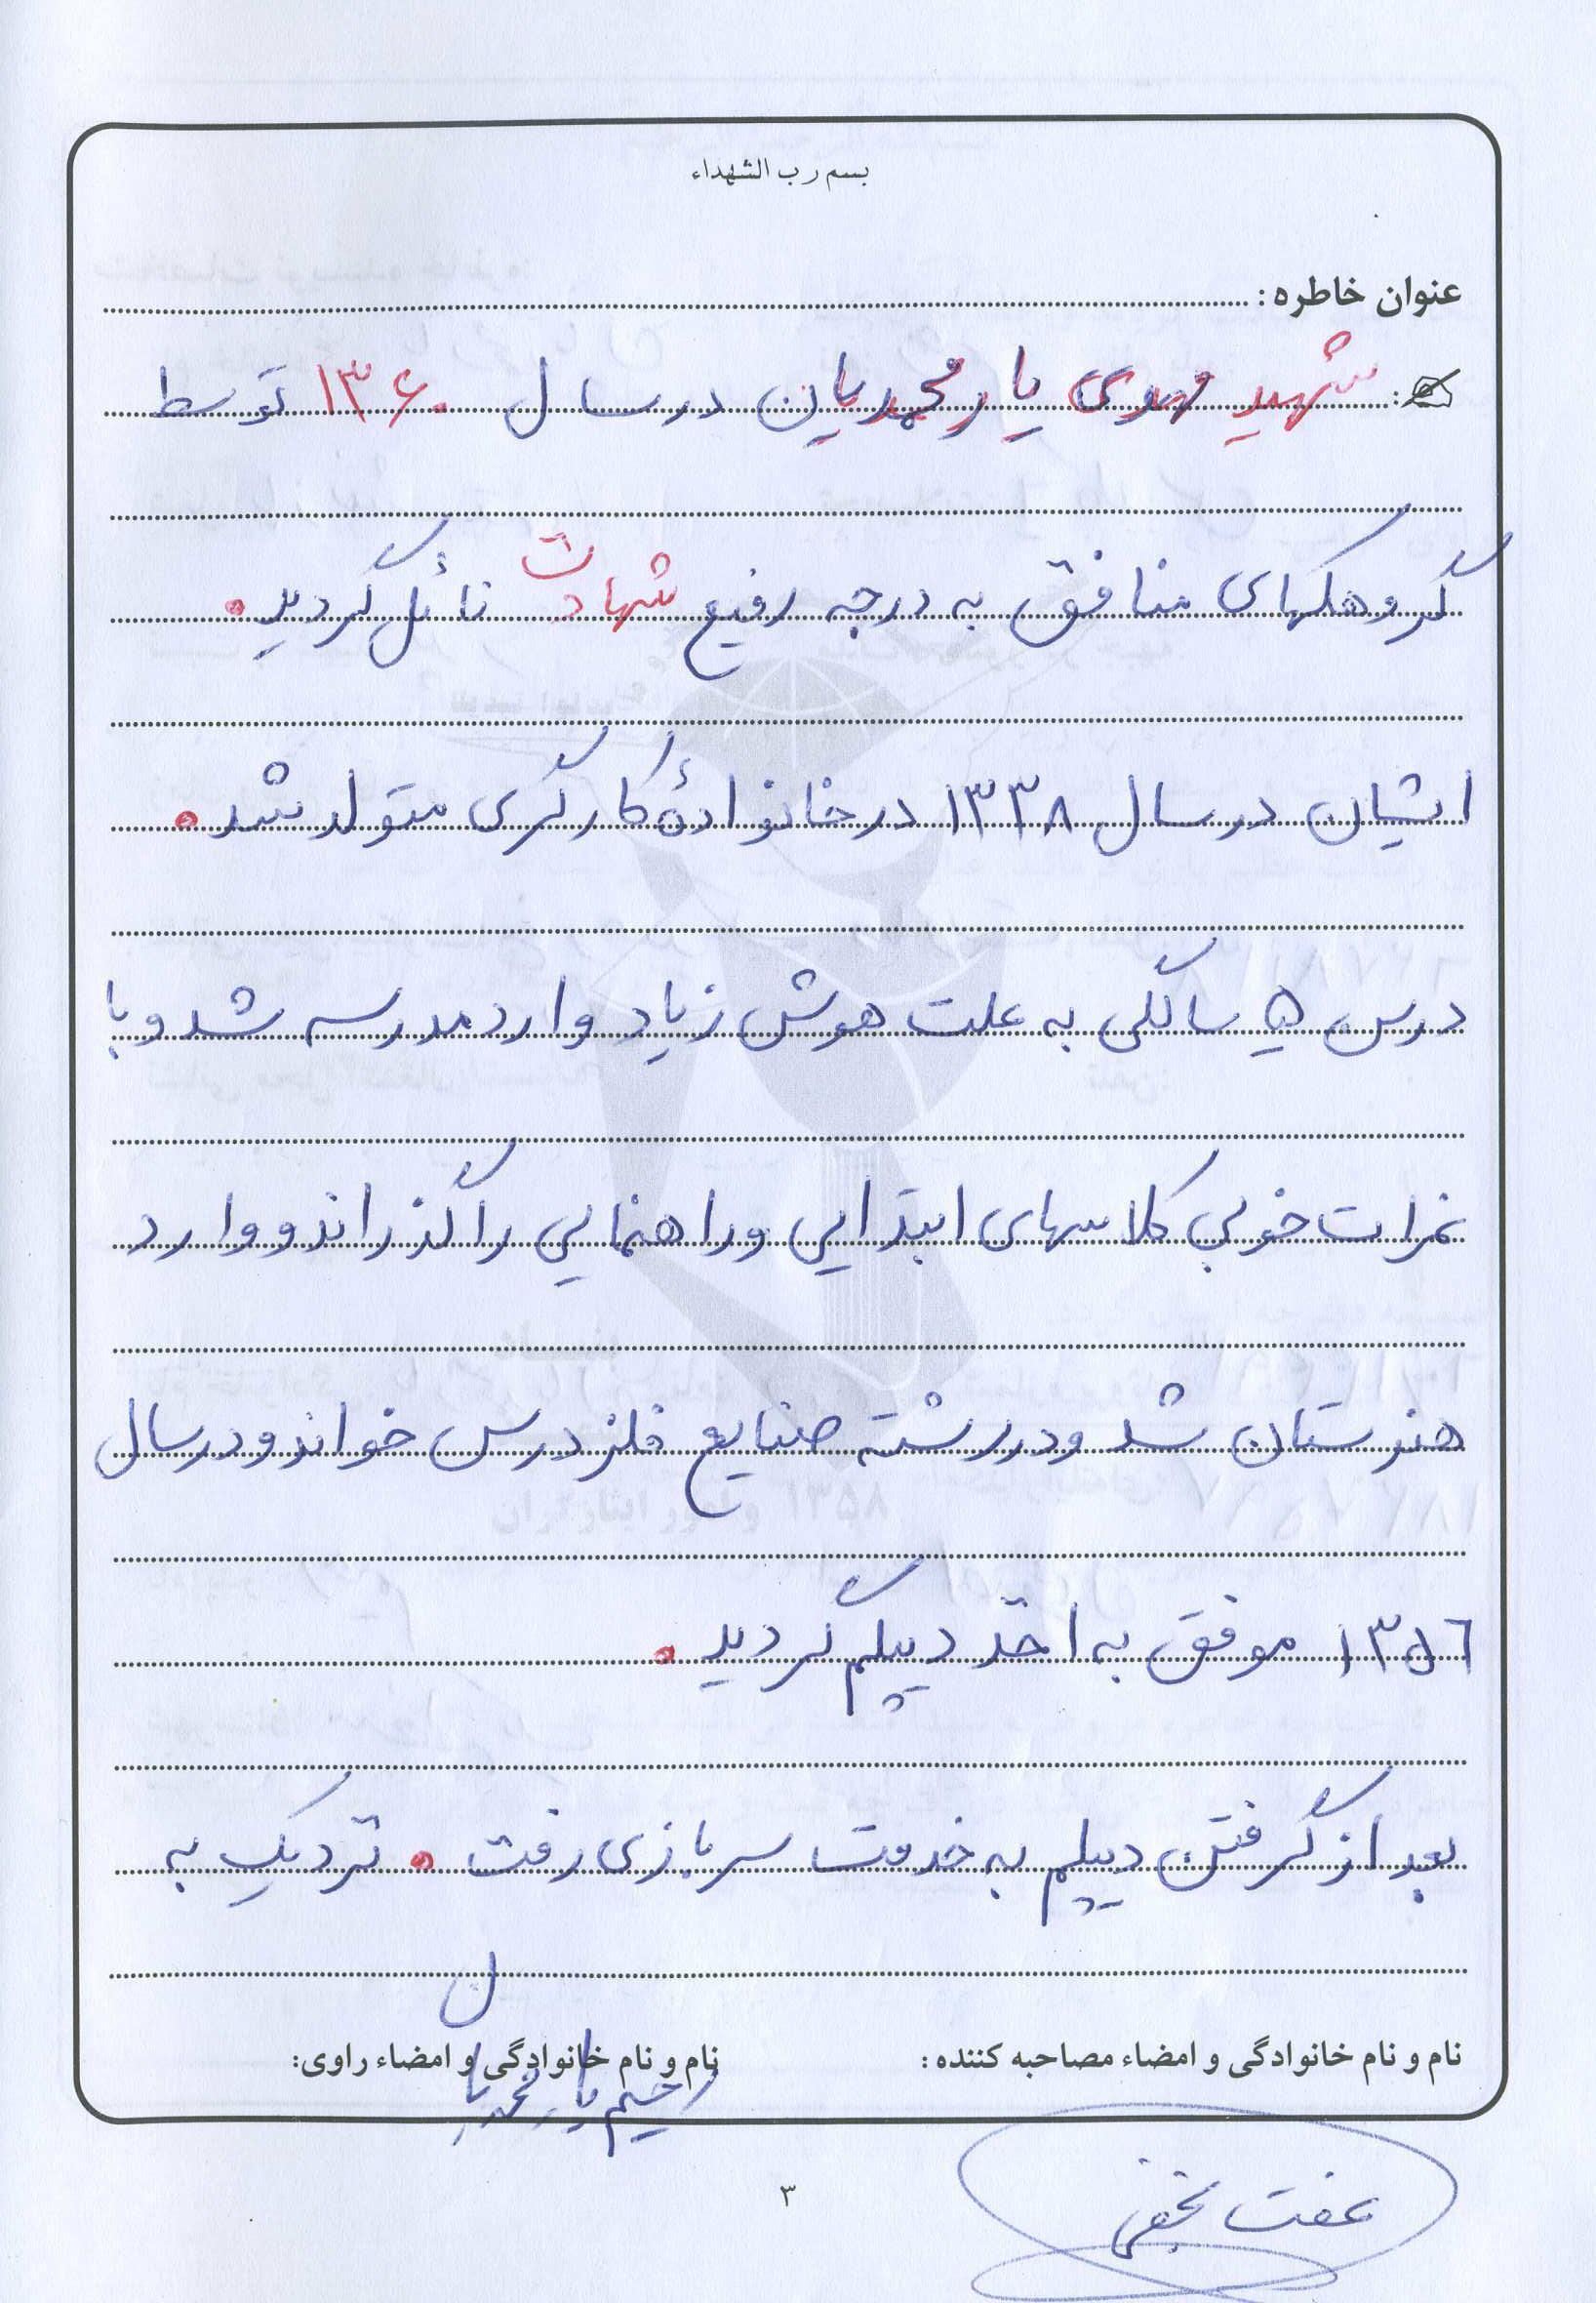 بسم رب الشهداء
عنوان خاطره :
شهید مهدی یارمحمدیان در سال ۱۳۶۰ توسط
گروهکهای منافق به درجه رفیع شهادت نائل گردید.
ایشان در سال ۱۳۳۸ در خانوادهٔ کارگری متولد شد.
در سن ۵ سالگی به علت هوش زیاد وارد مدرسه شد و با
نمرات خوبی کلاسهای ابتدایی و راهنمایی را گذراند و وارد
هنرستان شد و در رشته صنایع فلز درس خواند و در سال
۱۳۵۶ موفق به اخذ دیپلم گردید.
بعد از گرفتن دیپلم به خدمت سربازی رفت. نزدیک به
نام و نام خانوادگی و امضاء مصاحبه کننده :
نام و نام خانوادگی و امضاء راوی:
رحیم یارمحمدیان
عفت نجفی
۳